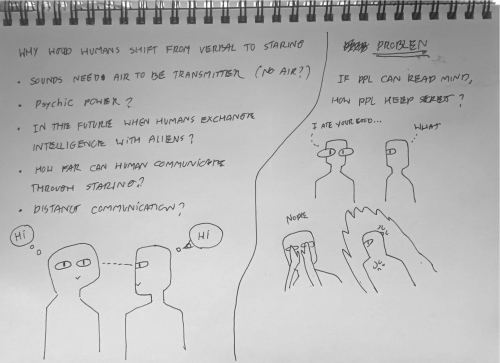 WHY WOULD HUMANS SHIFT FROM VERBAL TO STARING
• SOUNDS NEEDS AIR TO BE TRANSMITTER (NO AIR?)
• PSYCHIC POWER?
• IN THE FUTURE WHEN HUMANS EXCHANGE
INTELLIGENCE WITH ALIENS?
• HOW FAR CAN HUMAN COMMUNICATE
THROUGH STARING?
• DISTANCE COMMUNICATION?
Hi
Hi
PROBLEM
IF PPL CAN READ MIND,
HOW PPL KEEP SECRET?
I ATE YOUR FOOD...
WHAT
NOPE